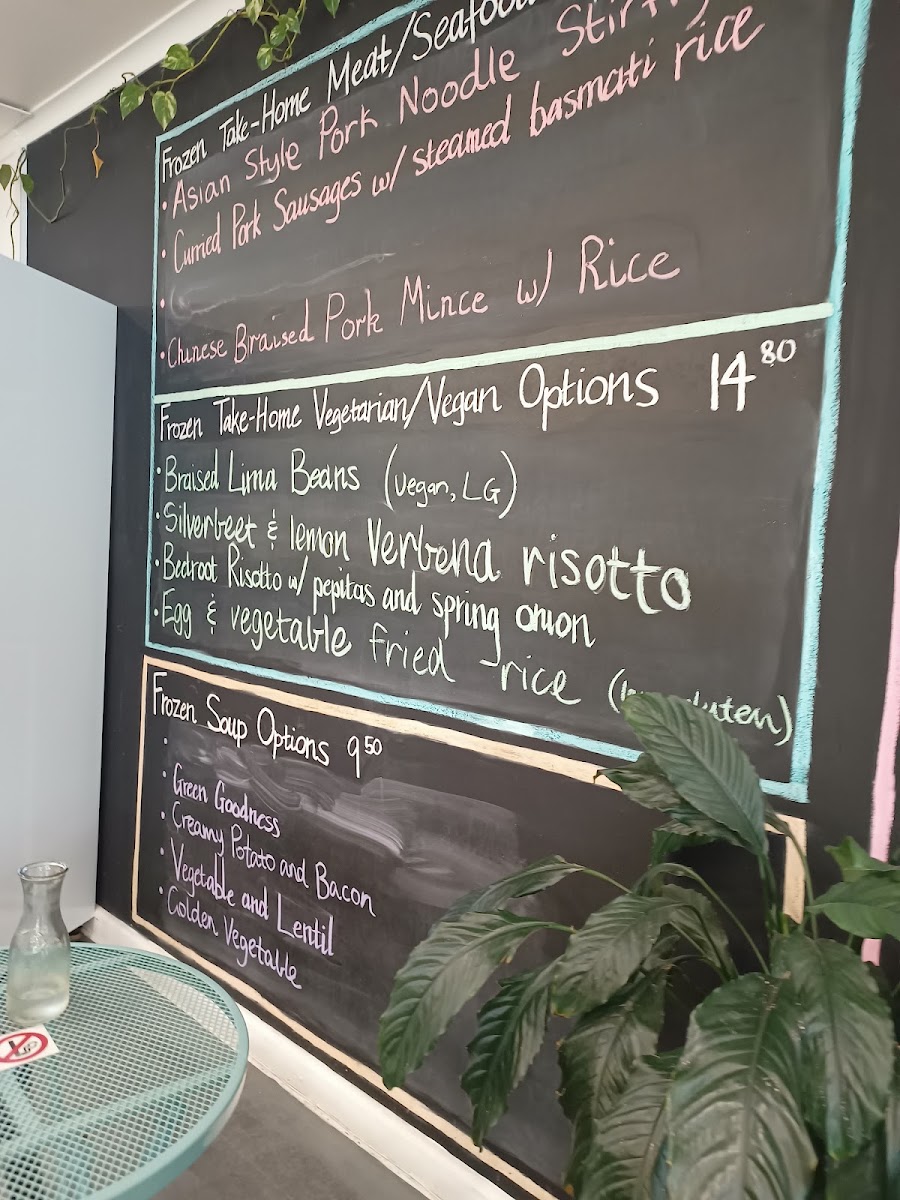 Frozen Take-Home Meat/Seafood
• Asian Style Pork Noodle Stirfry
• Curried Pork Sausages w/ steamed basmati rice
•
• Chinese Braised Pork Mince w/ Rice
Frozen Take-Home Vegetarian/Vegan Options 14.80
• Braised Lima Beans (vegan, LG)
• Silverbeet & lemon Verbena risotto
• Beetroot Risotto w/ pepitas and spring onion
• Egg & vegetable fried rice
Frozen Soup Options 9.50
•
• Green Goodness
• Creamy Potato and Bacon
• Vegetable and Lentil
• Golden Vegetable